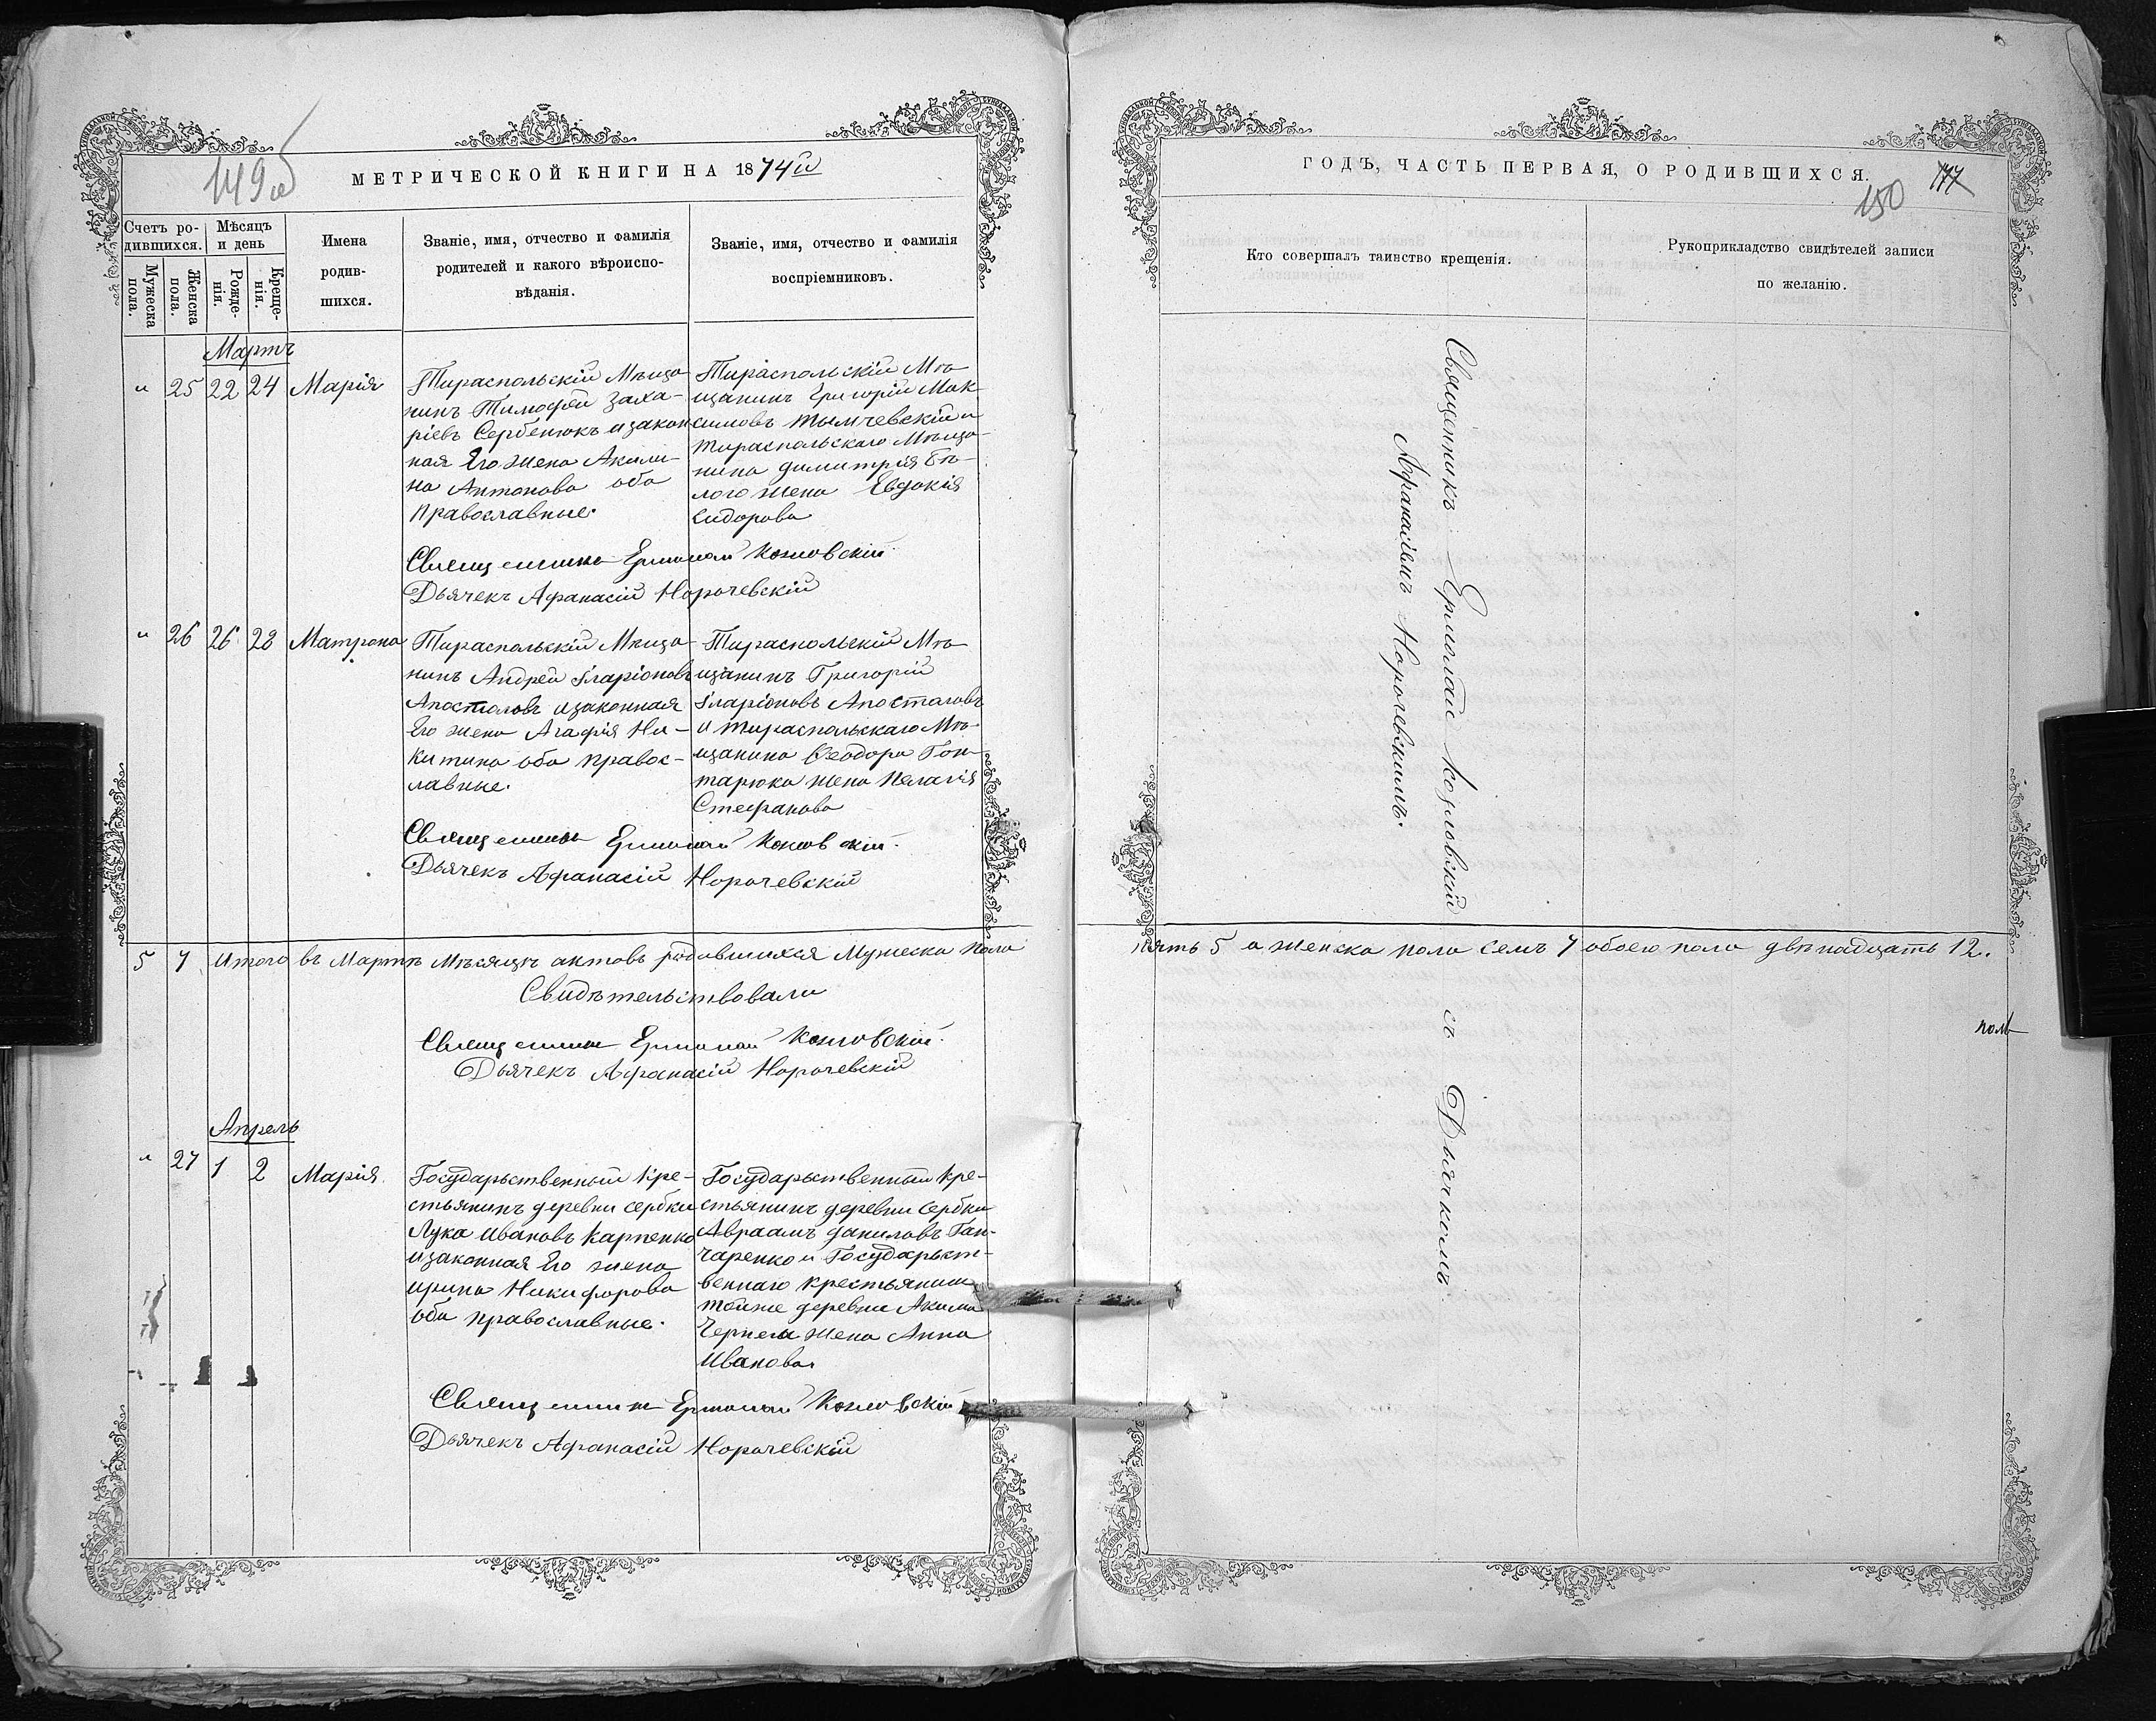 149 об
МЕТРИЧЕСКОЙ КНИГИ НА 1874й
Счетъ ро-
дившихся.
Мѣсяцъ
и день
Мужеска
пола.
Женска
пола.
Рожде-
нія.
Креще-
нія.
Имена
родив-
шихся.
Званіе, имя, отчество и фамилія
родителей и какого вѣроиспо-
вѣданія.
Званіе, имя, отчество и фамилія
воспріемниковъ.
Мартъ
" 25 22 24 Марія
Тираспольскій Мѣща-
нинъ Тимофей Заха-
ріевъ Сербенюкъ и закон
ная Его жена Акили-
на Антонова оба
Православные.
Тираспольскій Мѣ-
щанинъ Григорій Мак
симовъ Тымчевскій и
Тираспольскаго Мѣща-
нина Димитрія Бѣ-
лого жена Евдокія
Сидорова
Священникъ Ермолай Козловскій.
Дьячекъ Афанасій Норочевскій
" 26 26 28 Матрона
Тираспольскій Мѣща-
нинъ Андрей Іларіоновъ
Апостоловъ и законная
Его жена Агафія Ни-
китина оба правос-
лавные.
Тираспольскій Мѣ-
щанинъ Григорій
Іларіоновъ Апостоловъ
и Тираспольскаго Мѣ-
щанина Ѳеодора Гон-
тарюка жена Пелагія
Стефанова
Священникъ Ермолай Козловскій.
Дьячекъ Афанасій Норочевскій
5 7 Итого въ Мартѣ Мѣсяцѣ актовъ родившихся Мужеска пола
Свидѣтельствовали
Священникъ Ермолай Козловскій.
Дьячекъ Афанасій Норочевскій
Апрель
" 27 1 2 Марія
Государьственный Кре-
стьянинъ деревни Сербки
Лука Ивановъ Карпенко
и законная Его жена
Ирина Никифорова
оба православные.
Государьственный Кре-
стьянинъ деревни Сербки
Авраамъ Даниловъ Ган-
чаренко и Государьст-
веннаго крестьянина
тойже деревни Акима
Чернеги жена Анна
Иванова
Священникъ Ермолай Козловскій
Дьячекъ Афанасій Норочевскій
ГОДЪ, ЧАСТЬ ПЕРВАЯ, О РОДИВШИХСЯ.
150
Кто совершалъ таинство крещенія.
Рукоприкладство свидѣтелей записи
по желанію.
Священникъ Ермолай Козловскій съ Дьячкомъ
Афанасіемъ Норочевскимъ.
пять 5 а женска пола семъ 7 обоего пола двѣнадцать 12.